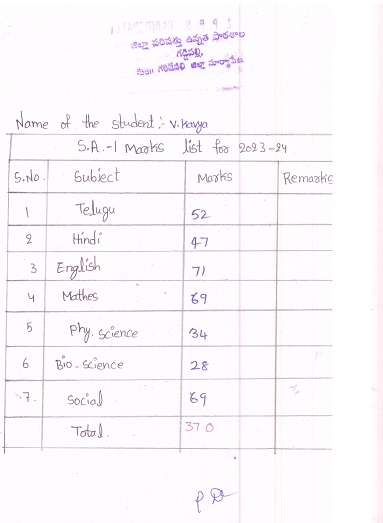 జిల్లా పరిషత్తు ఉన్నత పాఠశాల
గడ్డిపల్లి,
మం॥ గరిడేపల్లి జిల్లా సూర్యాపేట
Name of the student:- V. Kavya
S.A.-I Marks list for 2023-24
S.No. Subject Marks Remarks
1 Telugu 52
2 Hindi 47
3 English 71
4 Mathes 69
5 Phy. science 34
6 Bio-science 28
7. Social 69
Total. 370